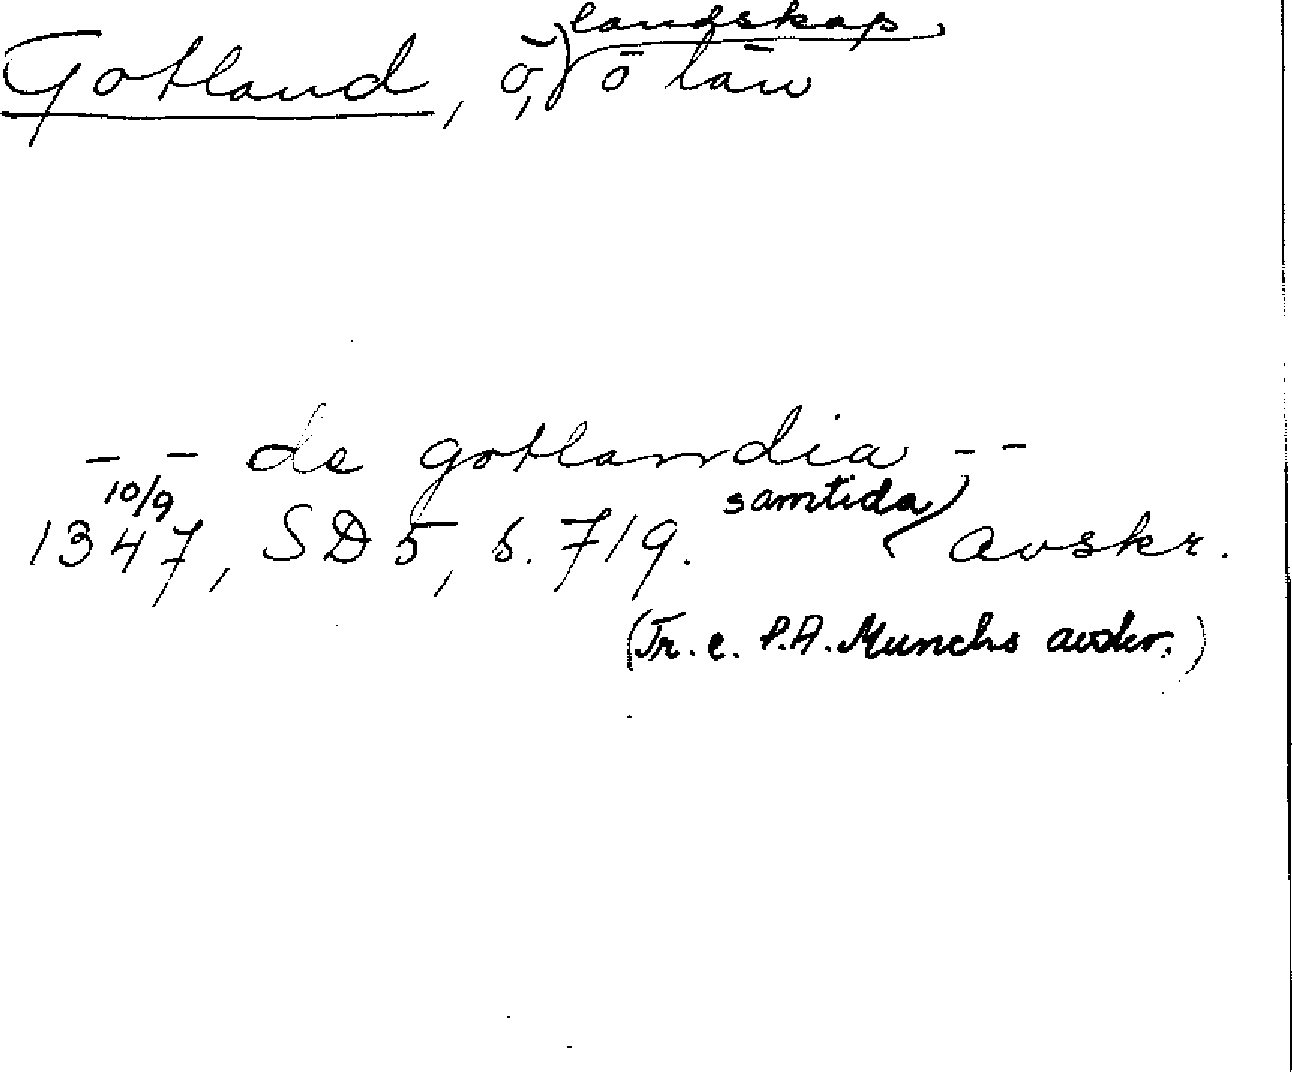 Gotland, ö, landskap, o län
- - de gotlandia - -
1347 10/9, SD 5, s. 719. samtida avskr.
(Tr. e. P.A. Munchs avskr.)